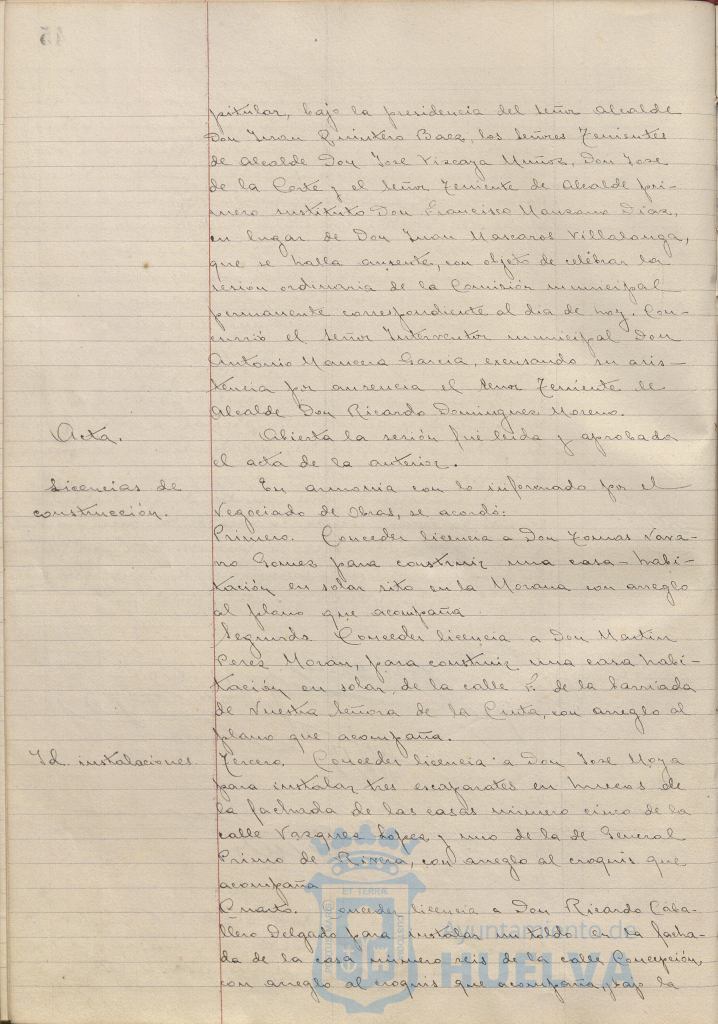 pitular, bajo la presidencia del señor Alcalde
Don Juan Quintero Baez, los señores Tenientes
de Alcalde Don Jose Vizcaya Muñoz, Don Jose
de la Corte y el señor Teniente de Alcalde pri-
mero sustituto Don Francisco Manzano Diaz,
en lugar de Don Juan Mascaros Villalonga,
que se halla ausente, con objeto de celebrar la
sesion ordinaria de la Comisión municipal
permanente correspondiente al dia de hoy. Con-
currió el señor Interventor municipal Don
Antonio Mancera Garcia, excusando su asis-
tencia por ausencia el señor Teniente de
Alcalde Don Ricardo Dominguez Moreno.
Acta.
Abierta la sesión fué leida y aprobada
el acta de la anterior.
Licencias de
construcción.
En armonia con lo informado por el
Negociado de Obras, se acordó:
Primero. Conceder licencia a Don Tomas Nava-
rro Gomez para construir una casa-habi-
tación en solar sito en la Morana con arreglo
al plano que acompaña.
Segundo. Conceder licencia a Don Martin
Perez Morán, para construir una casa habi-
tación en solar, de la calle F. de la barriada
de Nuestra Señora de la Cinta, con arreglo al
plano que acompaña.
Id. instalaciones.
Tercero. Conceder licencia a Don Jose Moya
para instalar tres escaparates en huecos de
la fachada de las casas número cinco de la
calle Vazquez Lopez y uno de la de General
Primo de Rivera, con arreglo al croquis que
acompaña
Cuarto. Conceder licencia a Don Ricardo Caba-
llero Delgado para instalar un toldo en la facha-
da de la casa número seis de la calle Concepción,
con arreglo al croquis que acompaña, bajo la
ET TERRA
Ayuntamiento de
HUELVA